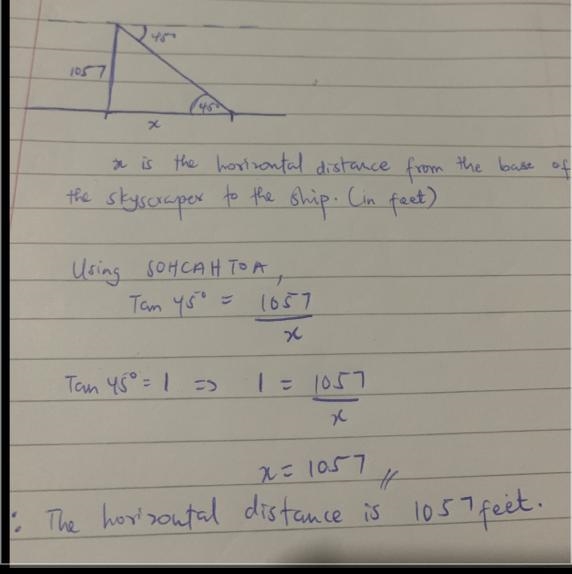 45°
1057
45°
x
x is the horizontal distance from the base of
the skyscraper to the ship. (in feet)
Using SOHCAHTOA,
Tan 45° = 1057
x
Tan 45° = 1 => 1 = 1057
x
x = 1057 //
: The horizontal distance is 1057 feet.